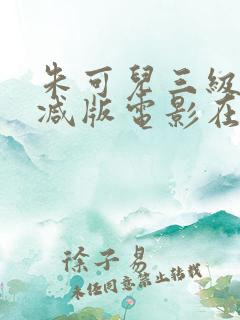 朱可兒三級
减版電影在
徐子易
未经同意禁止转载